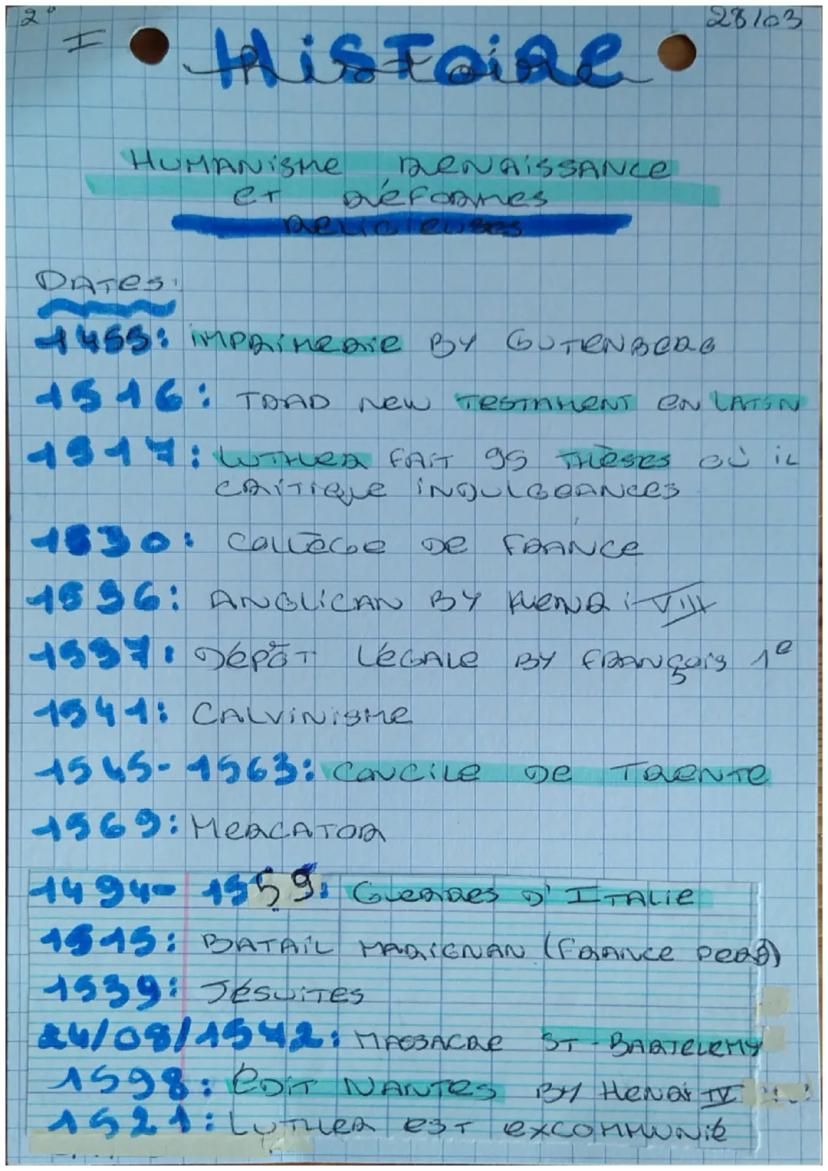 2°
I
28/03
Histoire
HUMANISME RENAISSANCE
ET RÉFORMES
RELIGIEUSES
DATES:
1455: IMPRIMERIE BY GUTENBERG
1516: TRAD NEW TESTAMENT EN LATIN
1517: LUTHER FAIT 95 THÈSES OÙ IL
CRITIQUE INDULGEANCES
1530: COLLÈGE DE FRANCE
1536: ANGLICAN BY HENRI VIII
1537: DÉPÔT LÉGALE BY FRANÇOIS 1e
1541: CALVINISME
1545-1563: CONCILE DE TRENTE
1569: MERCATOR
1494-1559: GUERRES D'ITALIE
1515: BATAIL MARIGNAN (FRANCE PERD)
1539: JÉSUITES
24/08/1542: MASSACRE ST-BARTELEMY
1598: EDIT NANTES BY HENRI IV
1521: LUTHER EST EXCOMMUNIÉ